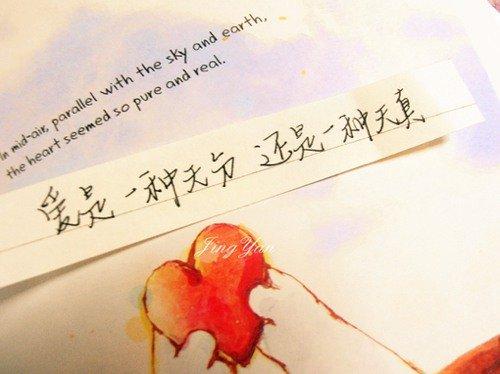 In mid-air, parallel with the sky and earth,
the heart seemed so pure and real.
爱是一种天分 还是一种天真
JingYan